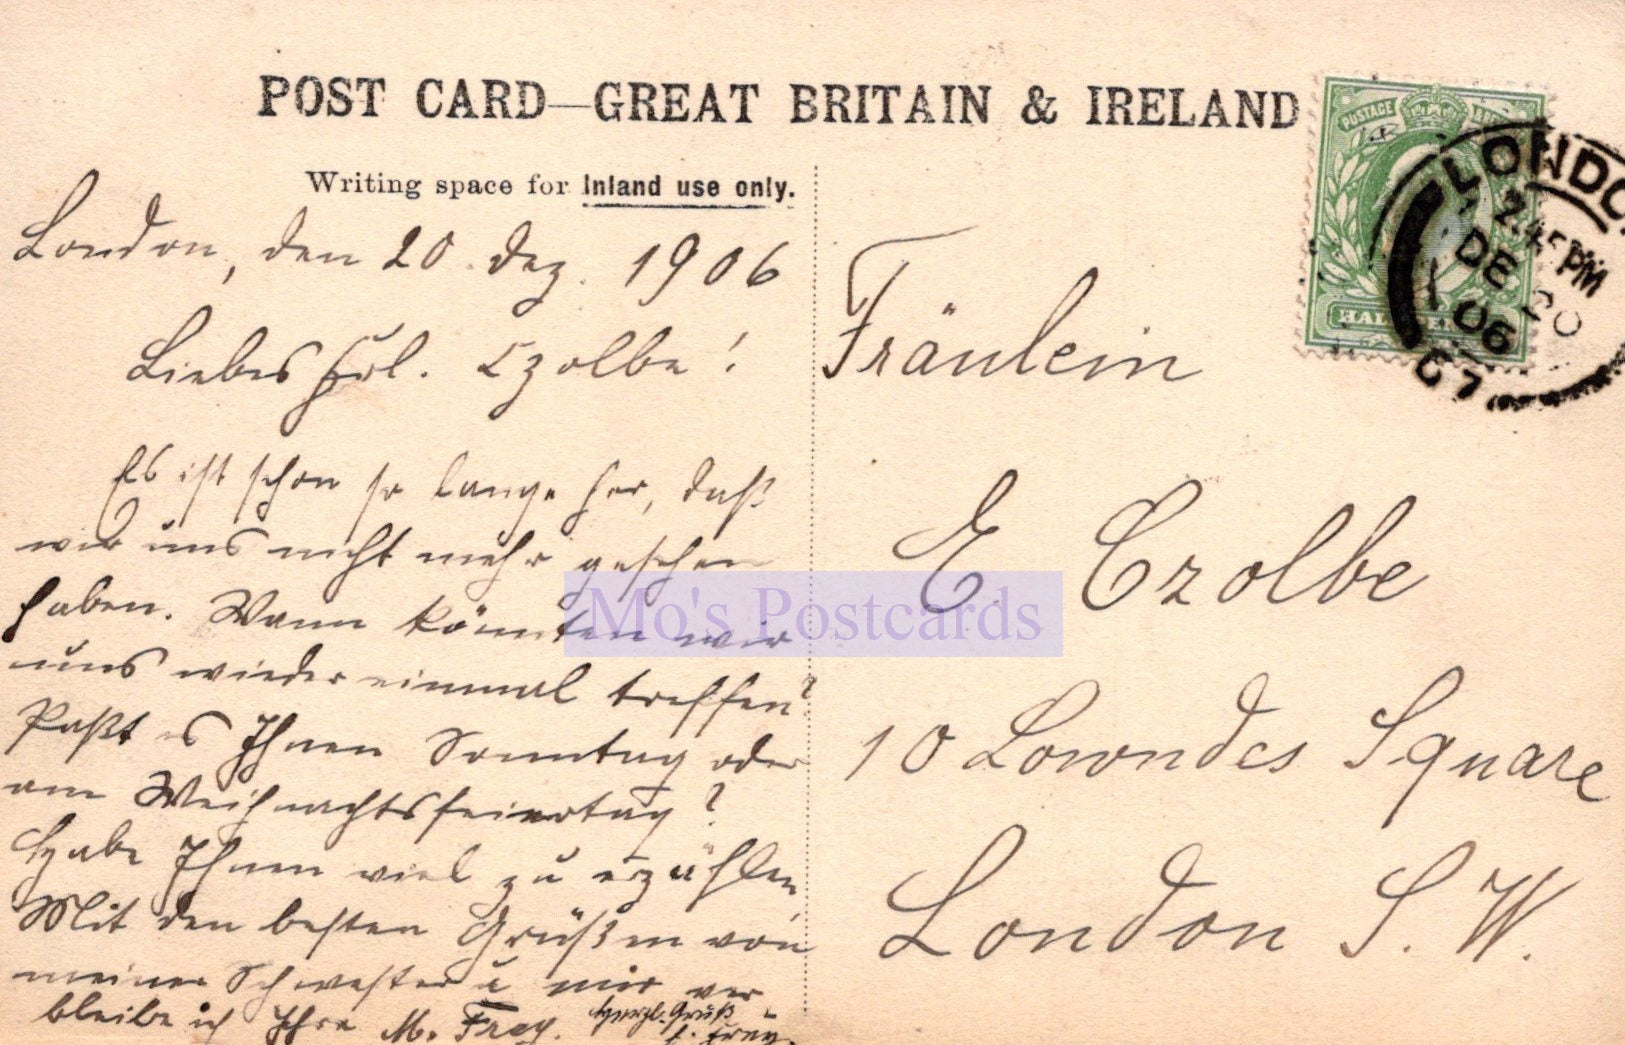 POST CARD—GREAT BRITAIN & IRELAND
Writing space for Inland use only.
POSTAGE
LONDON
2.45 PM
DE 20
06
67
London, den 20. Dez. 1906
Liebes Frl. Czolbe!
Es ist schon so lange her, daß
wir uns nicht mehr gesehen
haben. Wann könnten wir
uns wieder einmal treffen?
Paßt es Ihnen Sonntag oder
am Weihnachtsfeiertag?
Habe Ihnen viel zu erzählen,
Mit den besten Grüßen von
meiner Schwester u mir ver
bleibe ich Ihre M. Frey.
Herzl. Gruß
Fräulein
E. Czolbe
10 Lowndes Square
London S. W.
Mo's Postcards